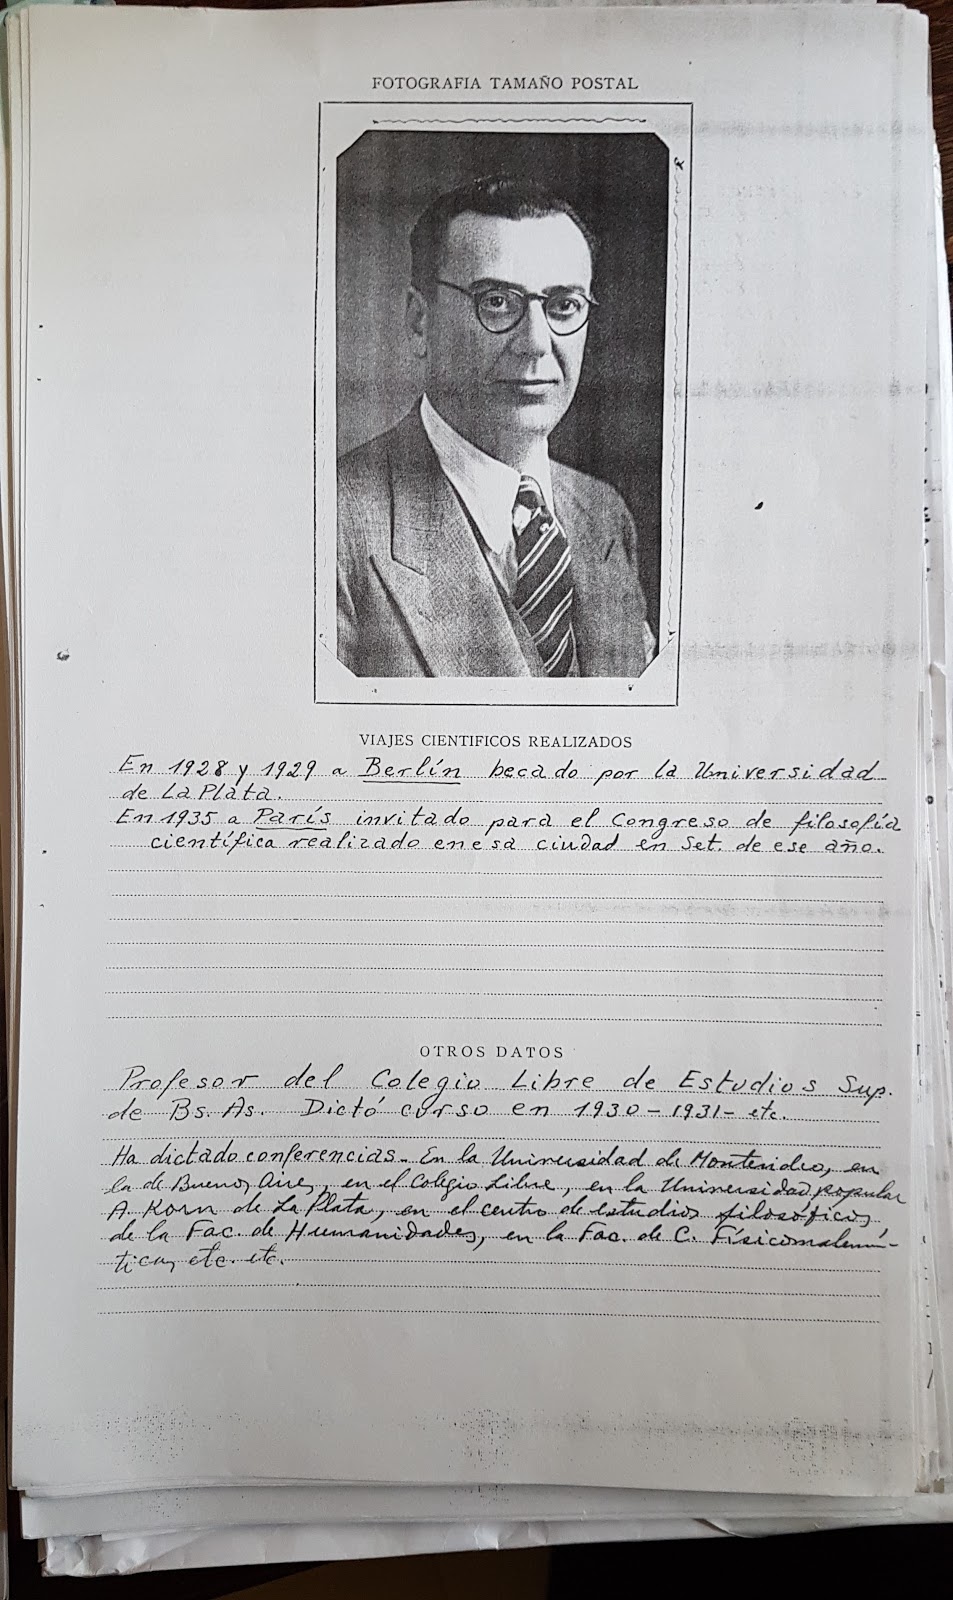 FOTOGRAFIA TAMAÑO POSTAL
VIAJES CIENTIFICOS REALIZADOS
En 1928 y 1929 a Berlín becado por la Universidad
de La Plata.
En 1935 a París invitado para el Congreso de filosofía
científica realizado en esa ciudad en Set. de ese año.
OTROS DATOS
Profesor del Colegio Libre de Estudios Sup.
de Bs. As. Dictó curso en 1930 - 1931 - etc.
Ha dictado conferencias. En la Universidad de Montevideo, en
la de Buenos Aires, en el Colegio Libre, en la Universidad popular
A. Korn de La Plata, en el centro de estudios filosóficos
de la Fac. de Humanidades, en la Fac. de C. Físicomatemá-
ticas, etc. etc.